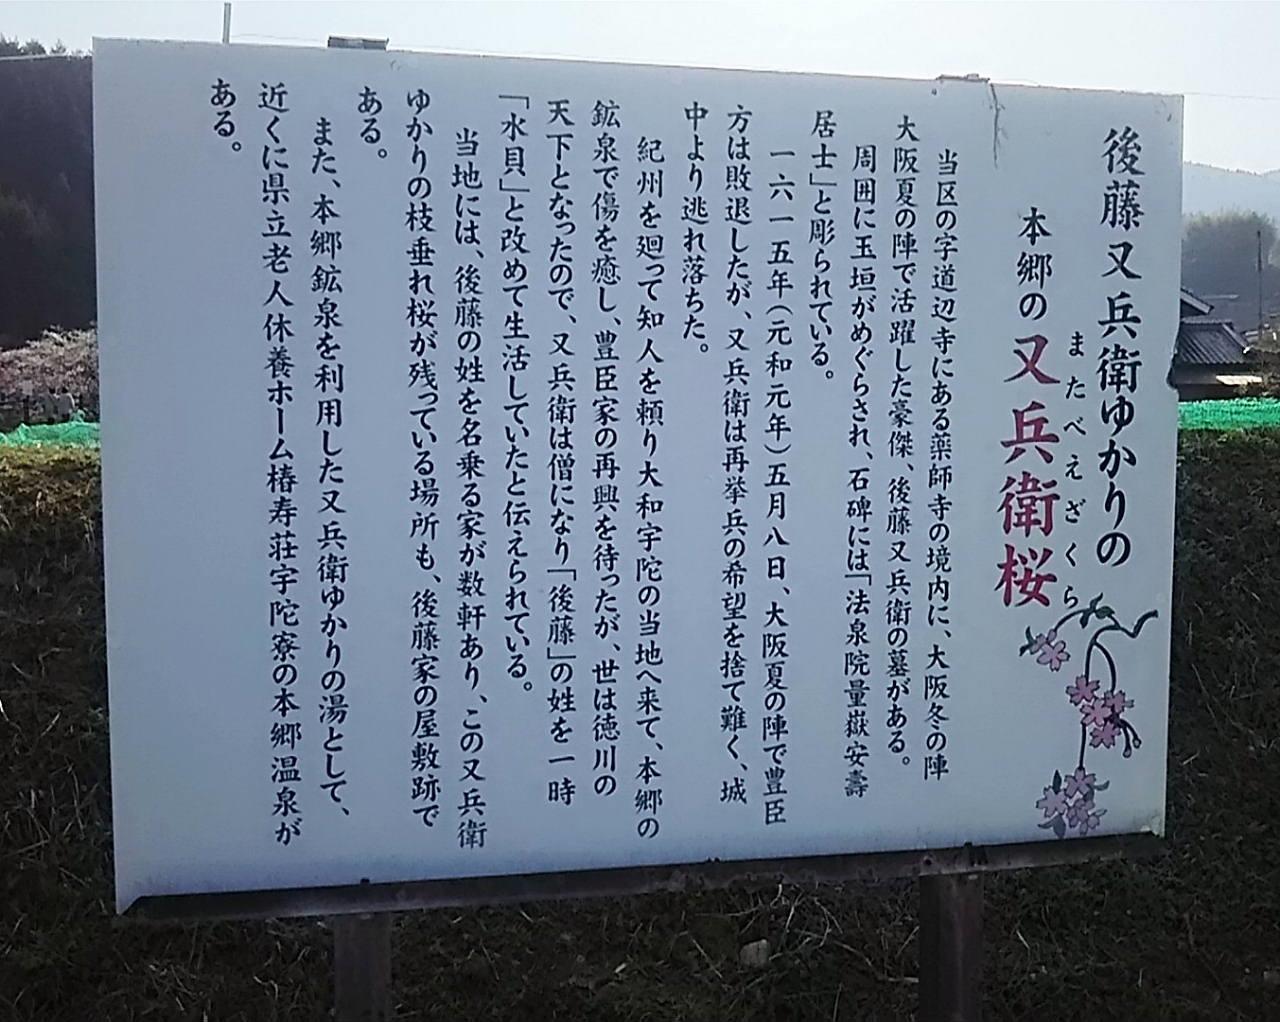 後藤又兵衛ゆかりの
またべえざくら
本郷の又兵衛桜
当区の字道辺寺にある薬師寺の境内に、大阪冬の陣
大阪夏の陣で活躍した豪傑、後藤又兵衛の墓がある。
周囲に玉垣がめぐらされ、石碑には「法泉院量嶽安壽
居士」と彫られている。
一六一五年(元和元年)五月八日、大阪夏の陣で豊臣
方は敗退したが、又兵衛は再挙兵の希望を捨て難く、城
中より逃れ落ちた。
紀州を廻って知人を頼り大和宇陀の当地へ来て、本郷の
鉱泉で傷を癒し、豊臣家の再興を待ったが、世は徳川の
天下となったので、又兵衛は僧になり「後藤」の姓を一時
「水貝」と改めて生活していたと伝えられている。
当地には、後藤の姓を名乗る家が数軒あり、この又兵衛
ゆかりの枝垂れ桜が残っている場所も、後藤家の屋敷跡で
ある。
また、本郷鉱泉を利用した又兵衛ゆかりの湯として、
近くに県立老人休養ホーム椿寿荘宇陀寮の本郷温泉が
ある。